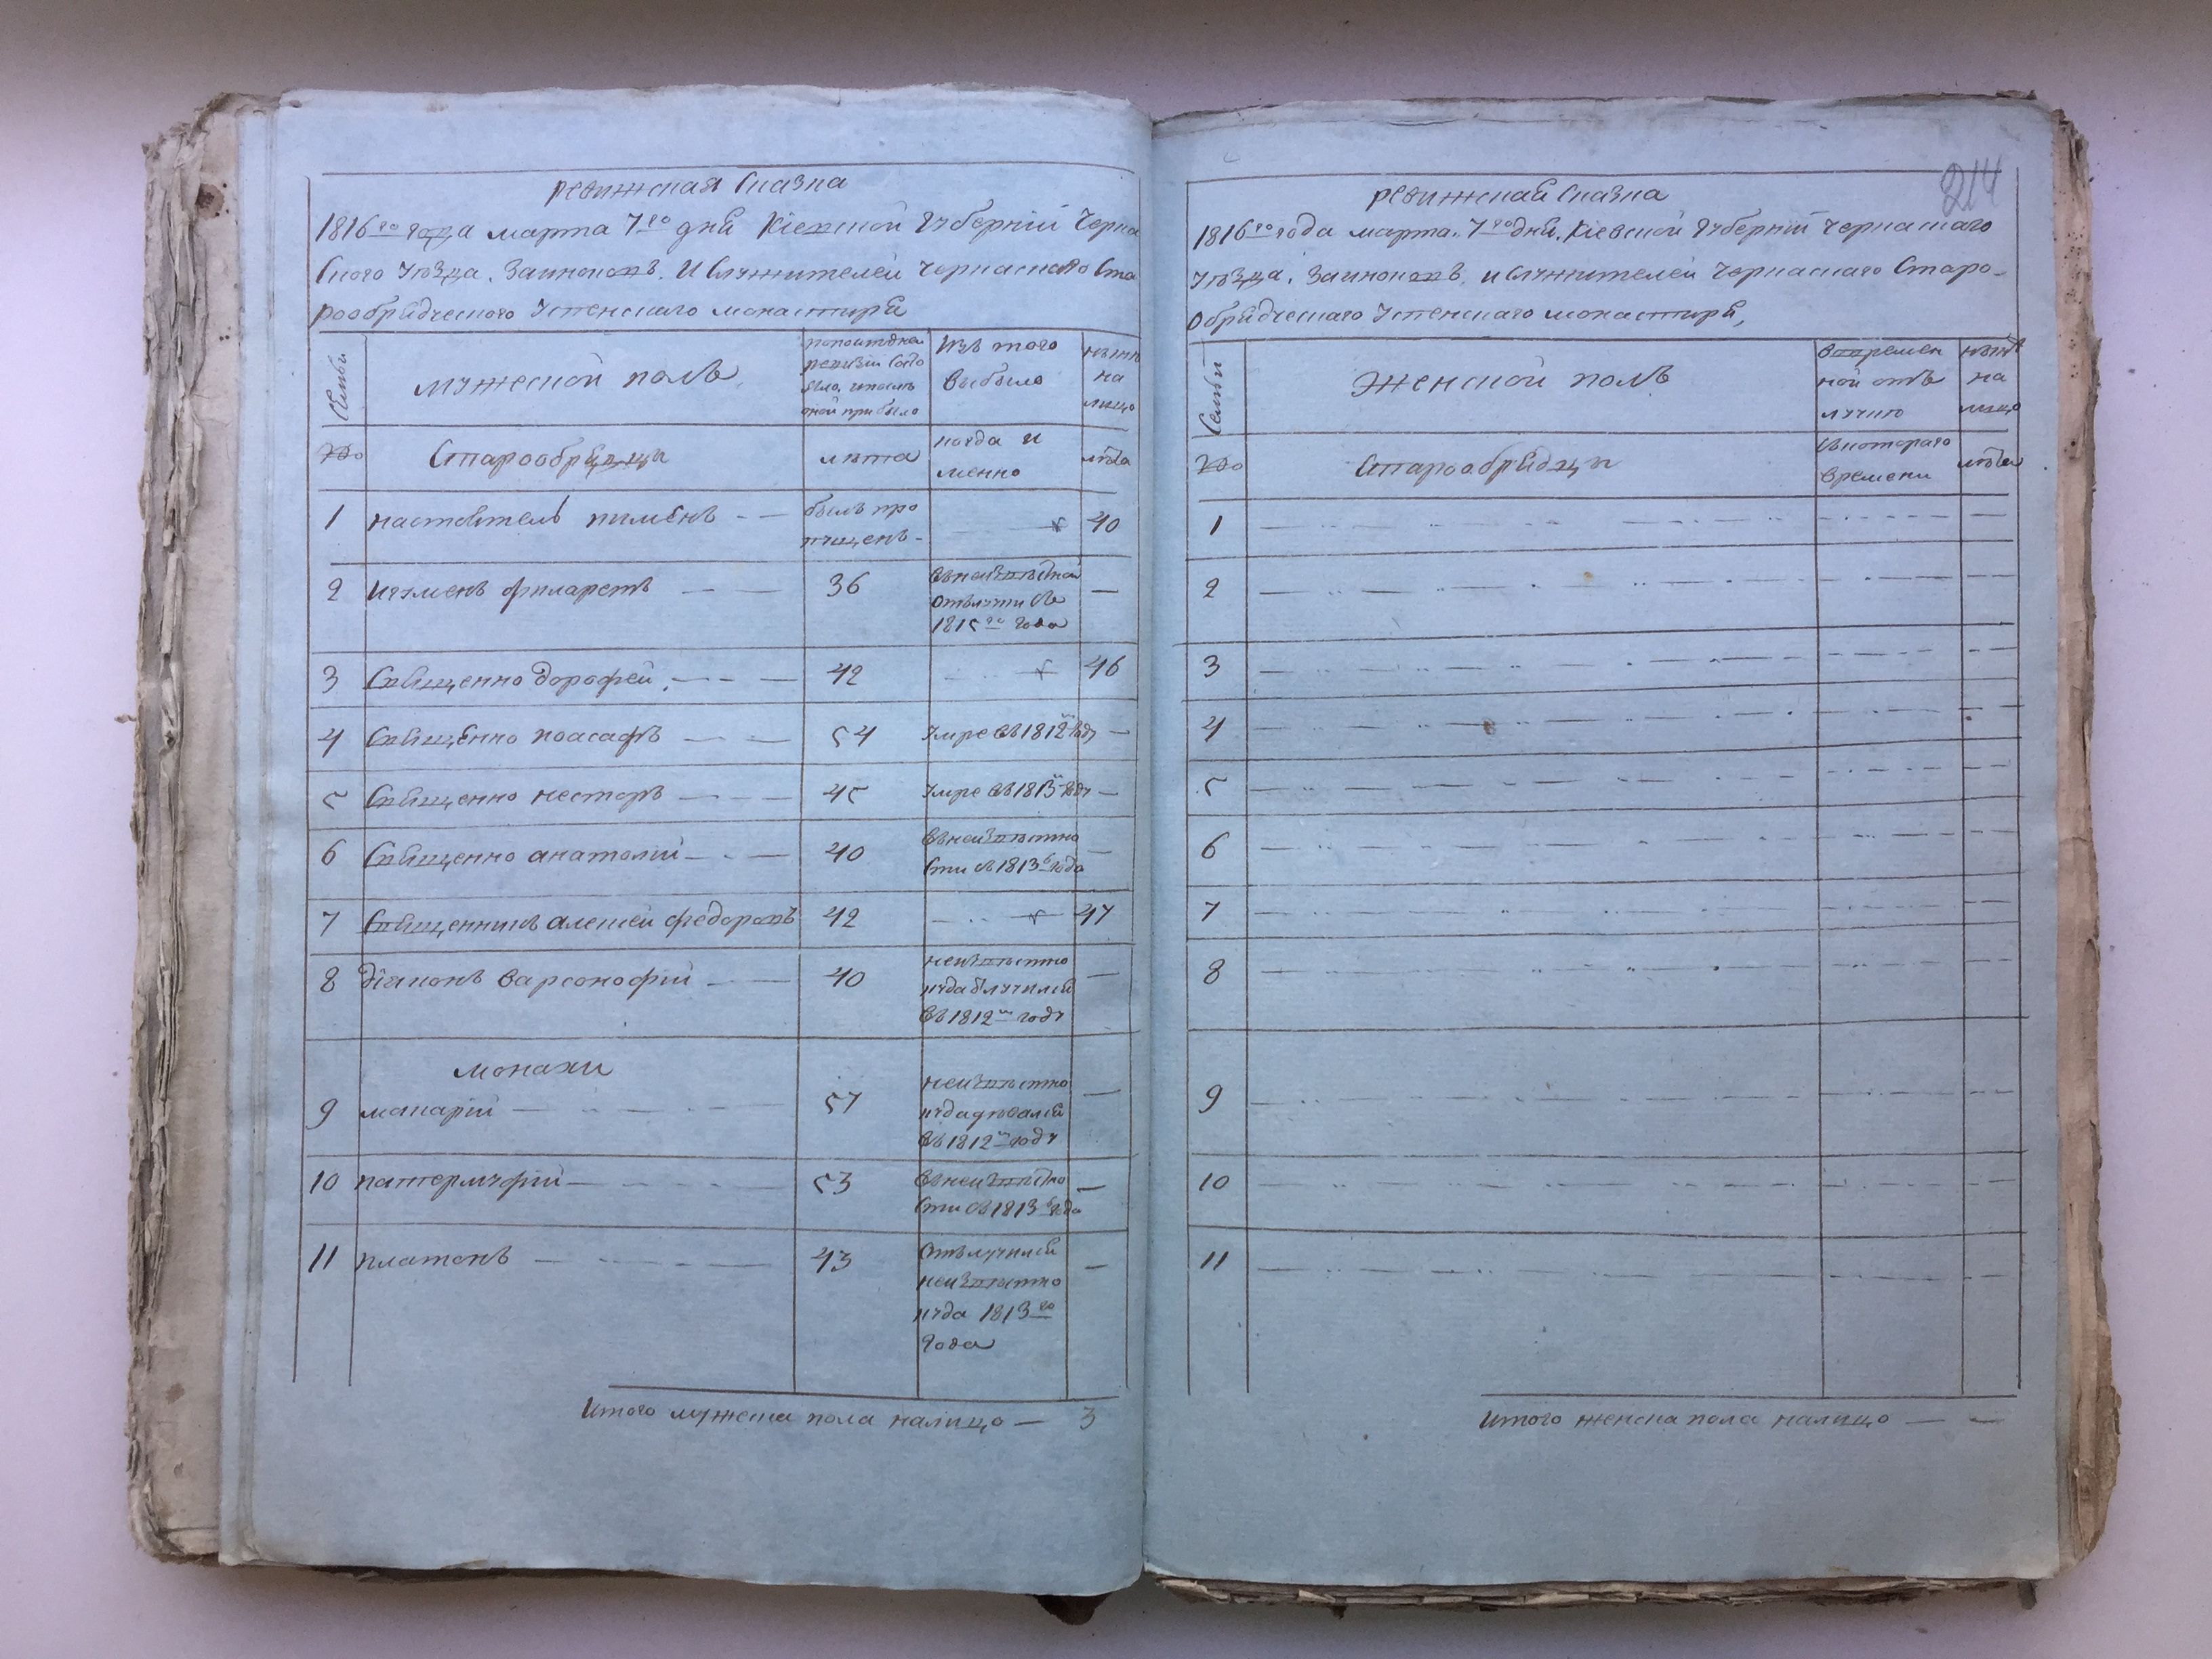 ревижская сказка
1816го года марта 7го дня Кіевской губерніи Черка
ского уѣзда. Заиноковъ. И служителей Черкаского Ста
рообрядческого Успенскаго монастыря
Семьи
мужеской полъ
попоследней
ревизіи состо
яло, ипослѣ
оной прибыло
Изъ того
выбыло
нынѣ
на
лицо
№
Старообрядцы
лѣта
когда и
менно
лѣта
1 наставтель пименъ — — былъ про
пущенъ - 40
2 Игуменъ филаретъ — — 36 въ неизвѣстной
отлучки съ
1815го года —
3 Священно дорофей. — - — 42 46
4 Священно иоасафъ — — 54 Умре въ 1812м году —
5 Священно несторъ — — 45 Умре въ 1813м году —
6 Священно анатолий — - — 40 въ неизвѣстно
сти съ 1813г года —
7 Священникъ алексей федоровъ 42 47
8 діяконъ варсонофий — — 40 неизвѣстно
куда отлучился
въ 1812м году —
монахи
9 макарій — 57 неизвѣстно
куда девался
въ 1812м году —
10 патермуфий — 53 въ неизвѣстно
сти съ 1813г года —
11 платонъ — 43 отлучился
неизвѣстно
куда 1813го
года —
Итого мужеска пола налицо — 3
214
ревижская сказка
1816го года марта. 7го дня. Кіевской губерніи Черкаскаго
уѣзда. Заиноковъ. и служителей Черкаскаго Старо-
обрядческаго Успенскаго монастыря,
Семьи
Женской полъ
вовремен
ной отъ
лучию
нынѣ
на
лицо
№
Старообрядцы
съкотораго
времени
лѣта
1
2
3
4
5
6
7
8
9
10
11
Итого женска пола налицо — —